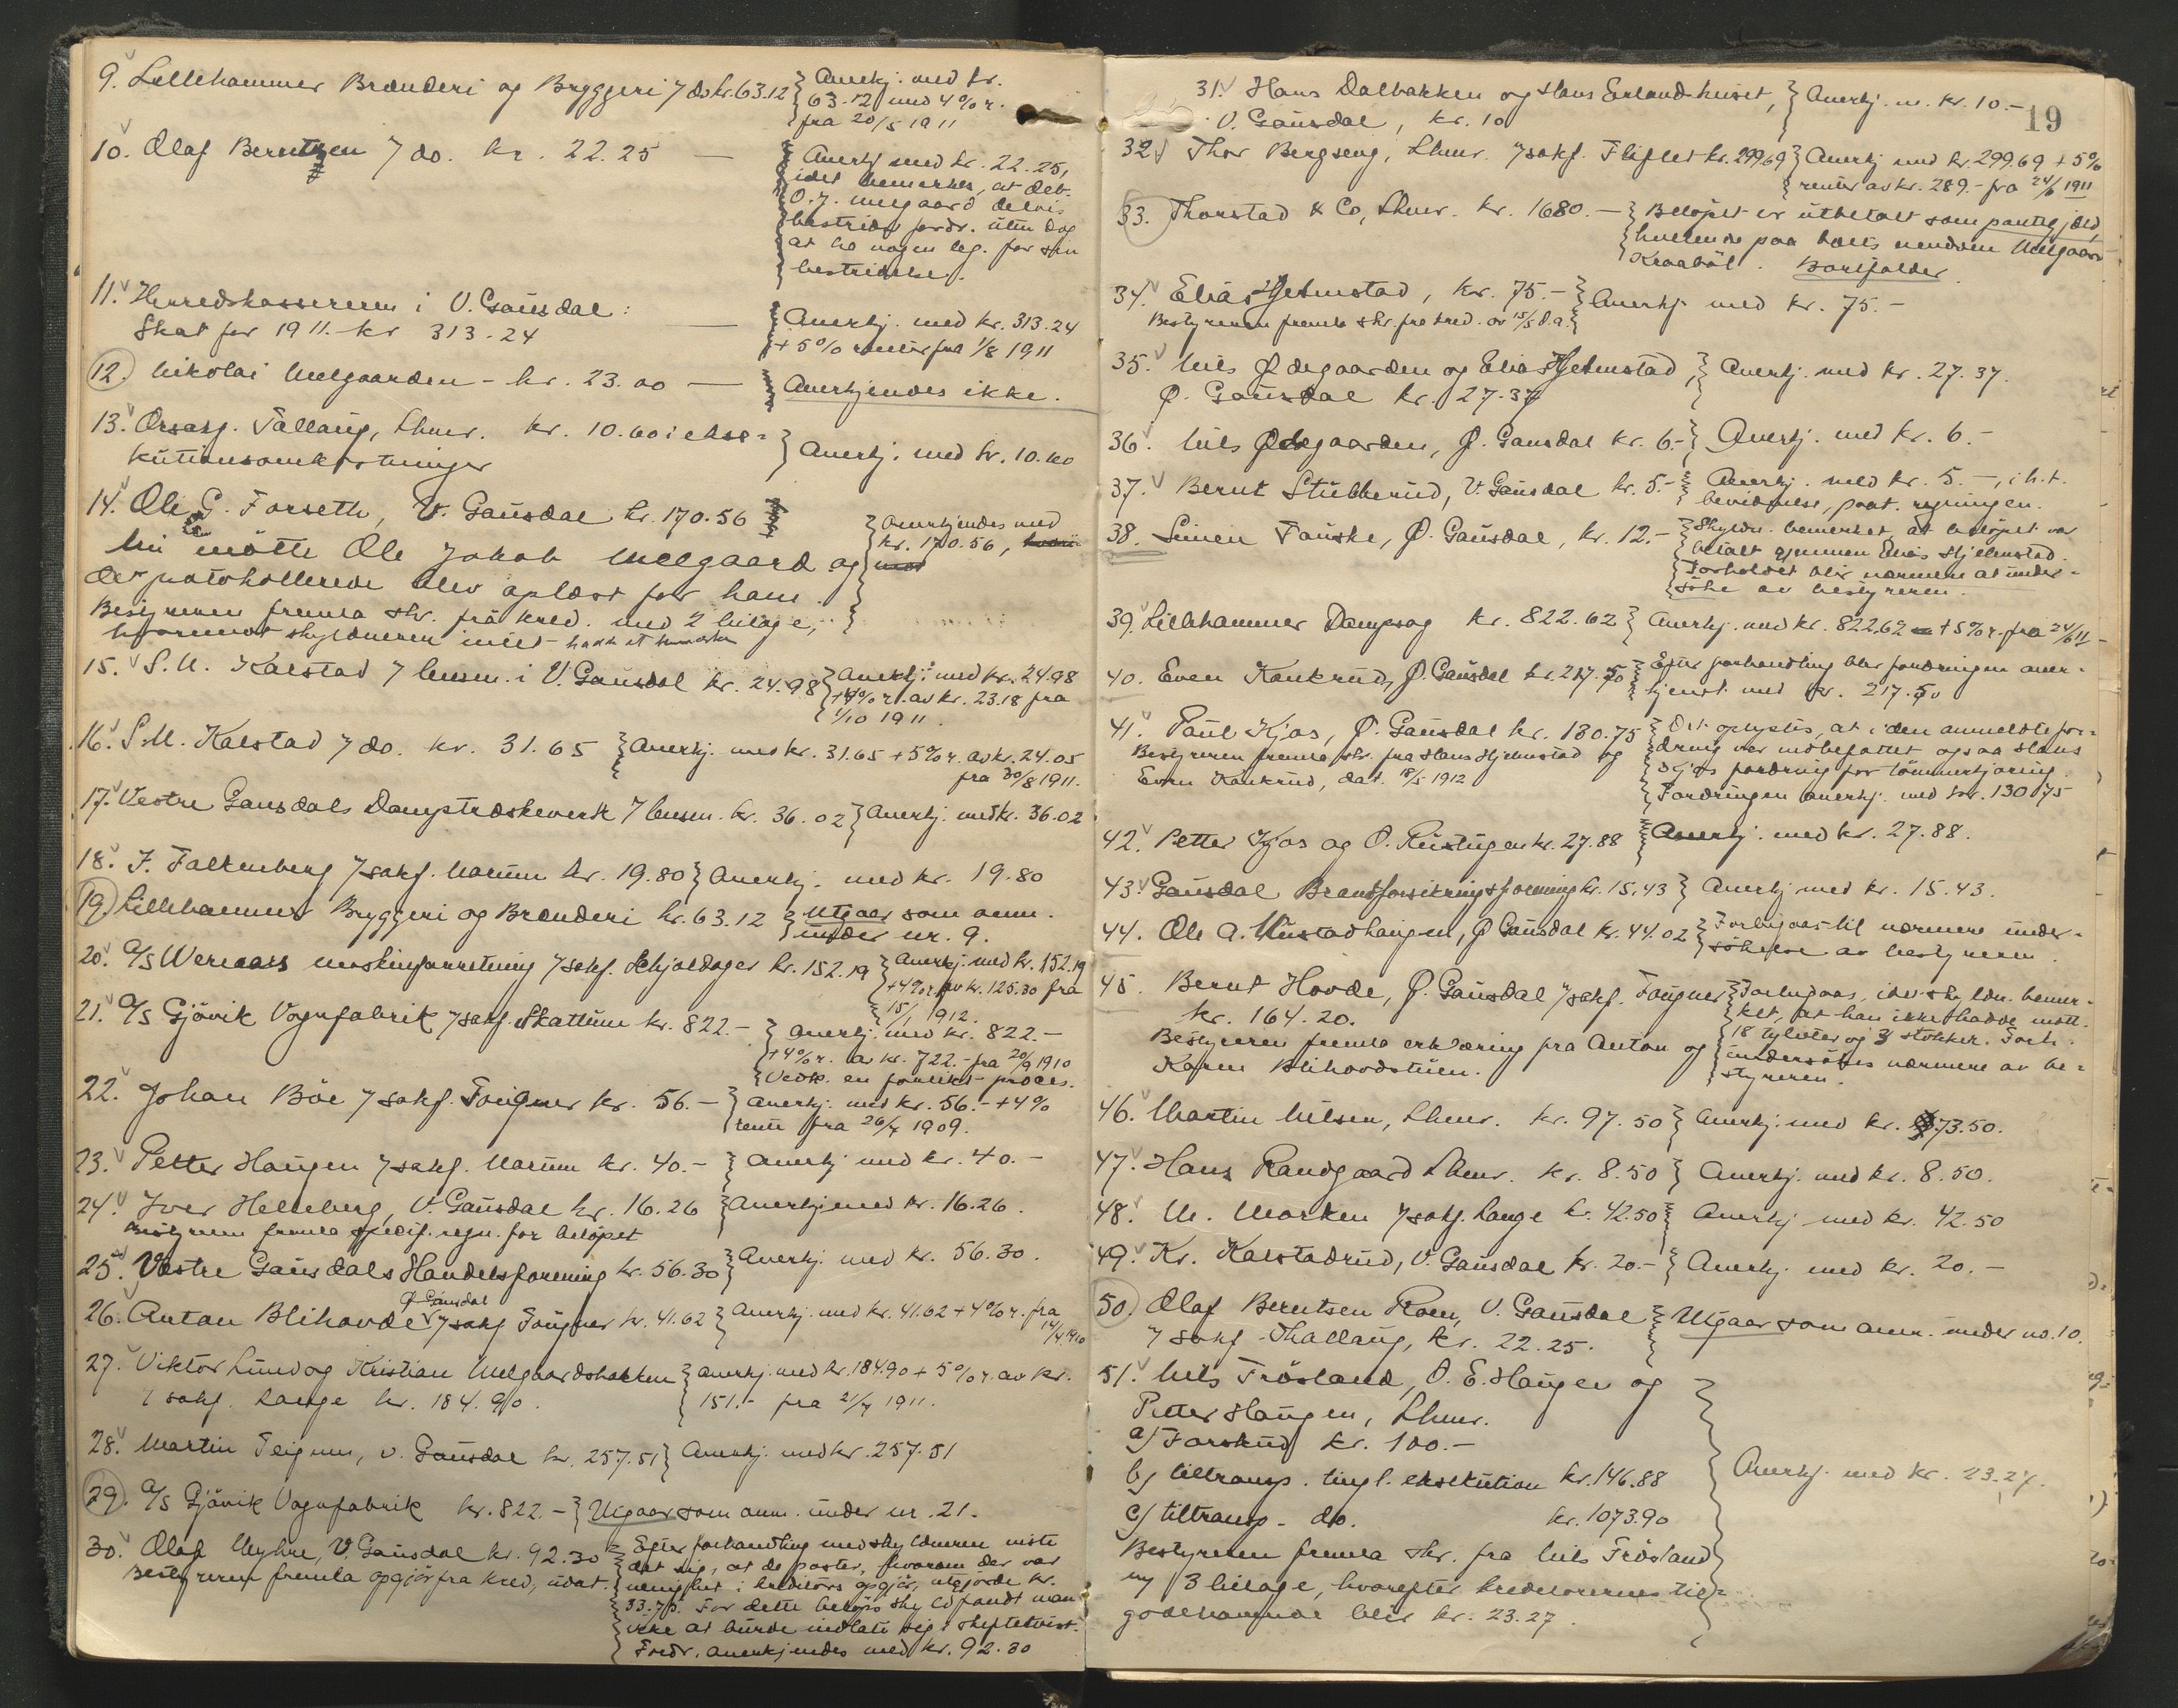 9. Lillehammer Brænderi og Bryggeri 7 do kr. 63.12 } Anerkj. med kr.
63.12 med 4% r.
fra 20/5 1911
10. Olaf Berntzen 7 do. kr. 22.25 — Anerkj med kr. 22.25,
idet bemerkes, at deb.
O. J. Melgaard delvis
bestrider fordr. uten dog
at ha nogen leg. for sin
bestridelse.
11. Herredskassereren i V. Gausdal:
Skat for 1911 - kr 313.24 — Anerkj. med kr. 313.24
+ 5% renter fra 1/8 1911
12. Nikolai Melgaarden - kr. 23.00 — Anerkjendes ikke.
13. Orsasg. Tallaug, Lhmr. kr. 10.60 i ekse=
kutionsomkostninger } Anerkj. med kr. 10.60
14. Ole G. Forseth, V. Gausdal kr. 170.56 } Anerkjendes med
kr. 170.56,
Nu møtte Ole Jakob Melgaard og
det protokollerede blev oplæst for ham.
Bestyreren fremla skr. fra kred. med 2 bilage,
hvorimot skyldneren intet hadde at bemerke
15. S. M. Kalstad 7 lensm. i V. Gausdal kr. 24.98 } Anerkj. med kr. 24.98
+ 4% r. av kr. 23.18 fra
1/10 1911.
16. S. M. Kalstad 7 do. kr. 31.65 } Anerkj. med kr. 31.65 + 5% r. av kr. 24.05
fra 30/8 1911.
17. Vestre Gausdals Damptræskeverk 7 lensm. kr. 36.02 } Anerkj. med kr. 36.02
18. J. Falkenberg 7 sakf. Narum kr. 19.80 } Anerkj. med kr. 19.80
19. Lillehammer Bryggeri og Brænderi kr. 63.12 } Utgaar som anm.
under nr. 9.
20. A/S Weraas maskinforretning 7 sakf. Schjoldager kr. 152.19 } Anerkj. med kr. 152.19
+ 4% r. av kr. 125.30 fra
15/1 1912.
21. A/S Gjövik Vognfabrik 7 sakf. Skattum kr. 822.- } Anerkj. med kr. 822.-
+ 4% r. av kr. 722.- fra 20/9 1910
Vedk. en forliks- proces.
22. Johan Böe 7 sakf. Fougner kr. 56.- } Anerkj. med kr. 56.- + 4%
rente fra 26/4 1909.
23. Petter Haugen 7 sakf. Narum kr. 40.- } Anerkj med kr. 40.-
24. Iver Helleberg, V. Gausdal kr. 16.26 } Anerkj. med kr. 16.26.
Bestyreren fremla specif. regn. for beløpet
25. Vestre Gausdals Handelsforening kr. 56.30 } Anerkj. med kr. 56.30.
26. Anton Blihovde Ø Gausdal 7 sakf Fougner kr. 41.62 } Anerkj. med kr. 41.62 + 4% r. fra
14/4 1910
27. Viktor Lund og Kristian Melgaardsbakken } Anerkj. med kr. 184.90 + 5% r. av kr.
7 sakf. Lange kr. 184.90. 151.- fra 21/4 1911.
28. Martin Teignen, V. Gausdal kr. 257.51 } Anerkj. med kr. 257.51
29. A/S Gjövik Vognfabrik kr. 822.- } Utgaar som anm. under nr. 21.
30. Olaf Myhre, V. Gausdal kr. 92.30 } Efter forhandling med skyldneren viste
Bestyreren fremla opgjör fra kred, udat. det sig, at de poster, hvorom der var
uenighet i kreditors opgjör, utgjorde kr.
33.75. For dette beløps skyld fandt man
ikke at burde indlate sig i skiftetvist.
Fordr. anerkjendes med kr. 92.30
19
31. Hans Dalbakken og Hans Erlandhuset, } Anerkj. m. kr. 10.-
V. Gausdal, kr. 10
32. Thor Bergseng, Lhmr. 7 sakf. Fliflet kr. 299.69 } Anerkj med kr. 299.69 + 5%
renter av kr. 289.- fra 24/6 1911
33. Thorstad & Co, Lhmr. kr. 1680.- } Beløpet er utbetalt som pantegjæld,
heftende paa boets eiendom Melgaard
Kraabøl. Bortfalder
34. Elias Hjelmstad, kr. 75.- } Anerkj. med kr. 75.-
Bestyreren fremla skr. fra kred. av 15/5 d.a.
35. Nils Ødegaarden og Elias Hjelmstad, } Anerkj. med kr. 27.37.
Ø. Gausdal kr. 27.37
36. Nils Ødegaarden, Ø. Gausdal kr. 6.- } Anerkj. med kr. 6.-
37. Bernt Stubberud, V. Gausdal kr. 5.- } Anerkj. med kr. 5.-, i h.t.
bevidnelse, paat. regningen.
38. Simen Fauske, Ø. Gausdal, kr. 12.- } Skyldn. bemerket, at beløpet var
betalt gjennem Elias Hjelmstad.
Forholdet blir nærmere at under=
søke av bestyreren.
39. Lillehammer Dampsag kr. 822.62 } Anerkj. med kr. 822.62 + 5% r. fra 24/6 11
40. Even Kankrud, Ø. Gausdal kr. 217.50 } Efter forhandling blev fordringen aner=
kjendt med kr. 217.50
41. Paul Kjos, Ø. Gausdal kr. 130.75 } Det oplystes, at i den anmeldte for=
Bestyreren fremla skr. fra Hans Hjelmstad og dring var indbefattet ogsaa Hans
Even Kankrud, dat. 18/5 1912 Kjos fordring for tömmerkjøring.
Fordringen anerkj. med kr. 130.75
42. Petter Kjos og O. Rustugen kr. 27.88 } Anerkj. med kr. 27.88.
43. Gausdal Brandforsikringsforening kr. 15.43 } Anerkj med kr. 15.43.
44. Ole A. Mustadhaugen, Ø Gausdal kr. 44.02 } Forbigaaes til nærmere under=
søkelse av bestyreren.
45. Bernt Hovde, Ø. Gausdal 7 sakf. Fougner } Forbigaas, idet skyldn. bemer=
kr. 164.20. ket, at han ikke hadde mott.
Bestyreren fremla erklæring fra Anton og 18 tylvter og 3 stokker. Forh.
Karen Blihovdstuen. undersøkes nærmere av be=
styreren.
46. Martin Nilsen, Lhmr. kr. 97.50 } Anerkj. med kr. 73.50.
47. Hans Randgaard Lhmr. kr. 8.50 } Anerkj. med kr. 8.50.
48. M. Morken 7 sakf. Lange kr. 42.50 } Anerkj med kr. 42.50
49. Kr. Kalstadrud, V. Gausdal kr. 20.- } Anerkj. med kr. 20.-
50. Olaf Berntsen Roen, V. Gausdal } Utgaar som anm. under no. 10.
7 sakf. Thallaug, kr. 22.25.
51. Nils Frösland, O. E. Haugen og
Petter Haugen, Lhmr.
a) Forskud kr. 100.-
b) tiltransp. tingl. eksekution kr. 146.88 } Anerkj. med kr. 23.27.
c) tiltransp. do. kr. 1073.90
Bestyreren fremla skr. fra Nils Frösland
m/ 3 bilage, hvorefter kreditorernes til=
godehavende blir kr. 23.27.